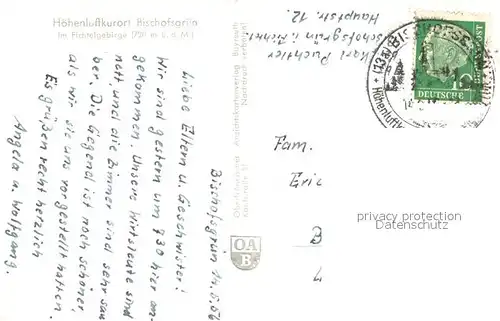 Höhenluftkurort Bischofsgrün
im Fichtelgebirge (700 m ü. d. M.)
Bischofsgrün 14.8.
Liebe Eltern u. Geschwister!
Wir sind gestern um 930 hier an-
gekommen. Unsere Wirtsleute sind
nett, und die Zimmer sind sehr sau
ber. Die Gegend ist noch schöner,
als wir sie uns vorgestellt hatten.
Es grüßen recht herzlich
Angela u. Wolfgang.
Ansichtskartenverlag Bayreuth
Nachdruck verboten
OA
B
Karl Puchtler
Bischofsgrün i. Fichtel
Hauptstr. 12.
(13a) BISCHOFSG
Höhenluftk
10
DEUTSCHE
POST
Fam.
Eric
B
privacy protection
Datenschutz